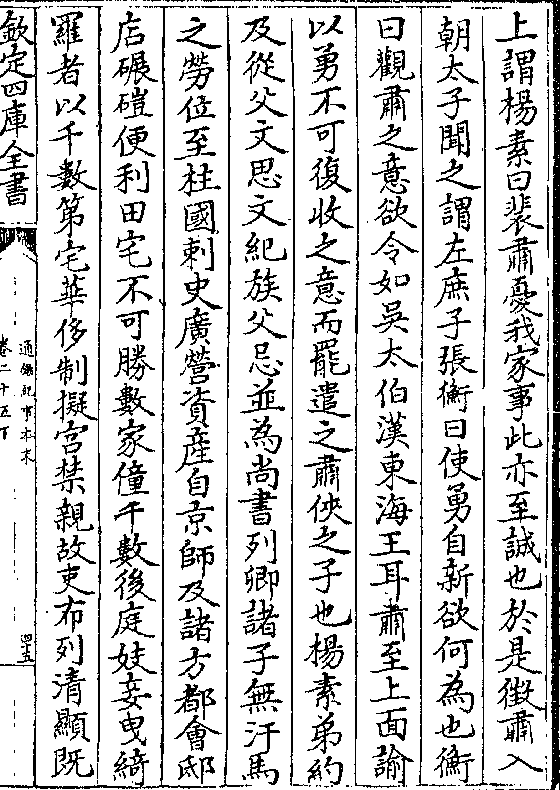 上謂楊素曰裴肅憂我家事此亦至誠也於是徴肅入
朝太子聞之謂左庶子張衡曰使勇自新欲何為也衡
曰觀肅之意欲令如吳太伯漢東海王耳肅至上面諭
以勇不可復收之意而罷遣之肅俠之子也楊素弟約
及從父文思文紀族父忌並為尚書列卿諸子無汗馬
之勞位至柱國刺史廣營資産自京師及諸方都會邸
店碾磑便利田宅不可勝數家僮千數後庭妓妾曳綺
羅者以千數第宅華侈制擬宮禁親故吏布列清顯既
欽定四庫全書
通鑑紀事本末
卷二十五下
四五